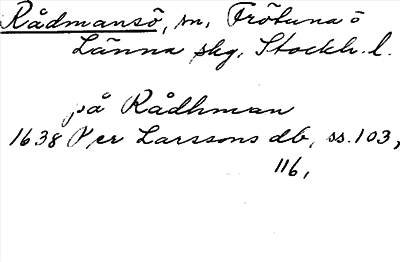 Rådmansö, sn, Frötuna o
Länna skg, Stockh. l.
på Rådhman
1638 Per Larssons db, ss. 103,
116,